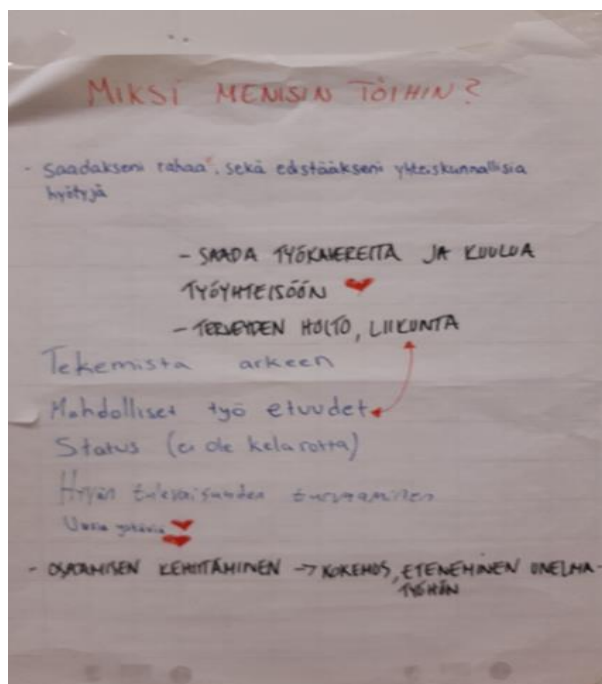 MIKSI MENISIN TÖIHIN?
- Saadakseni rahaa, sekä edistääkseni yhteiskunnallisia
hyötyjä
- SAADA TYÖKAVEREITA JA KUULUA
TYÖYHTEISÖÖN ❤
- TERVEYDEN HOITO, LIIKUNTA
Tekemistä arkeen
Mahdolliset työ etuudet
Status (ei ole kelarotta)
Hyvän tulevaisuuden turvaaminen
Uusia ystäviä ❤
- OSAAMISEN KEHITTÄMINEN → KOKEMUS, ETENEMINEN UNELMA-
TYÖHÖN